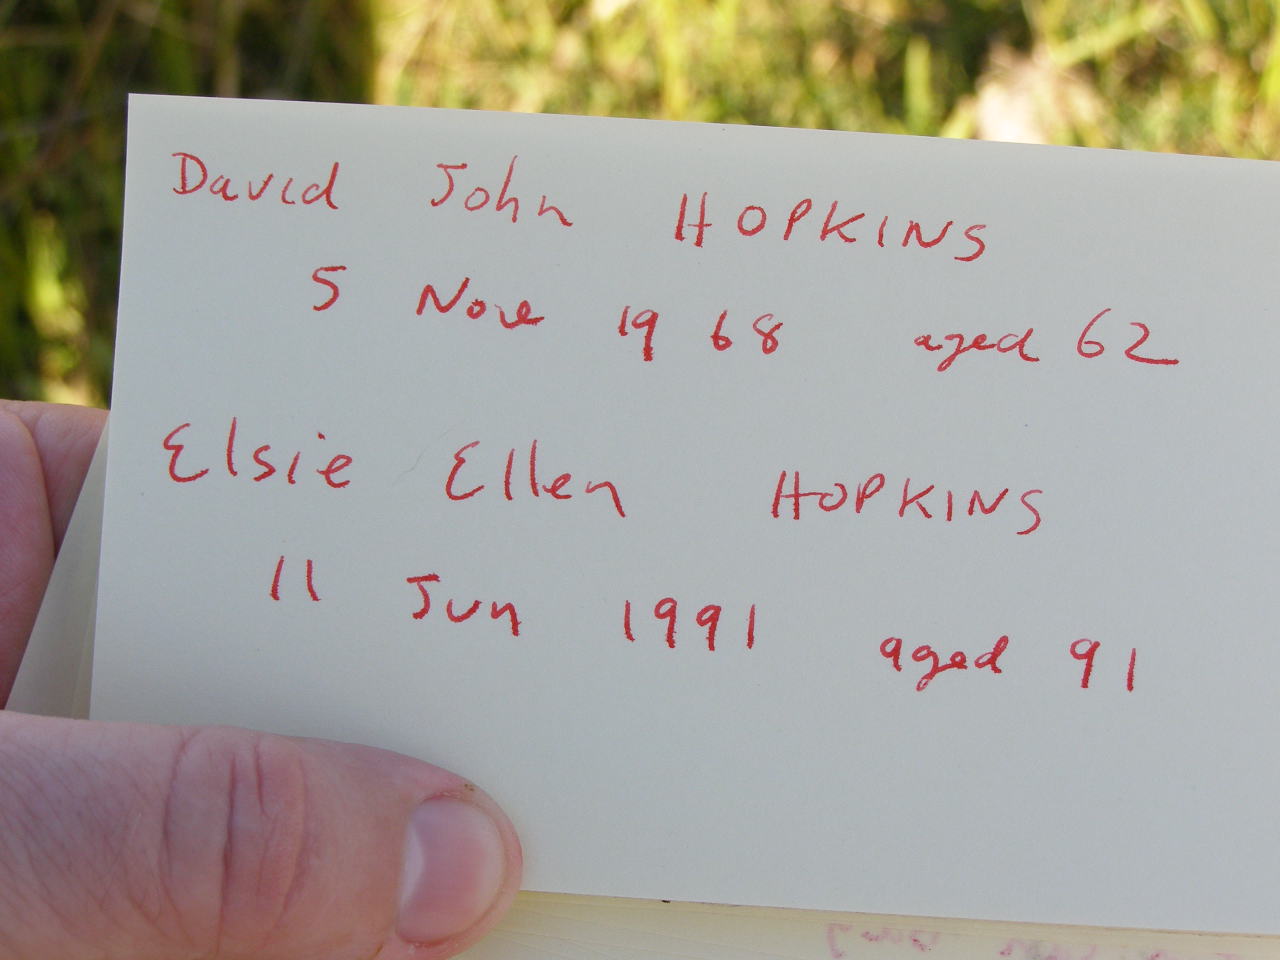 David John HOPKINS
5 Nove 1968 aged 62
Elsie Ellen HOPKINS
11 Jun 1991 aged 91